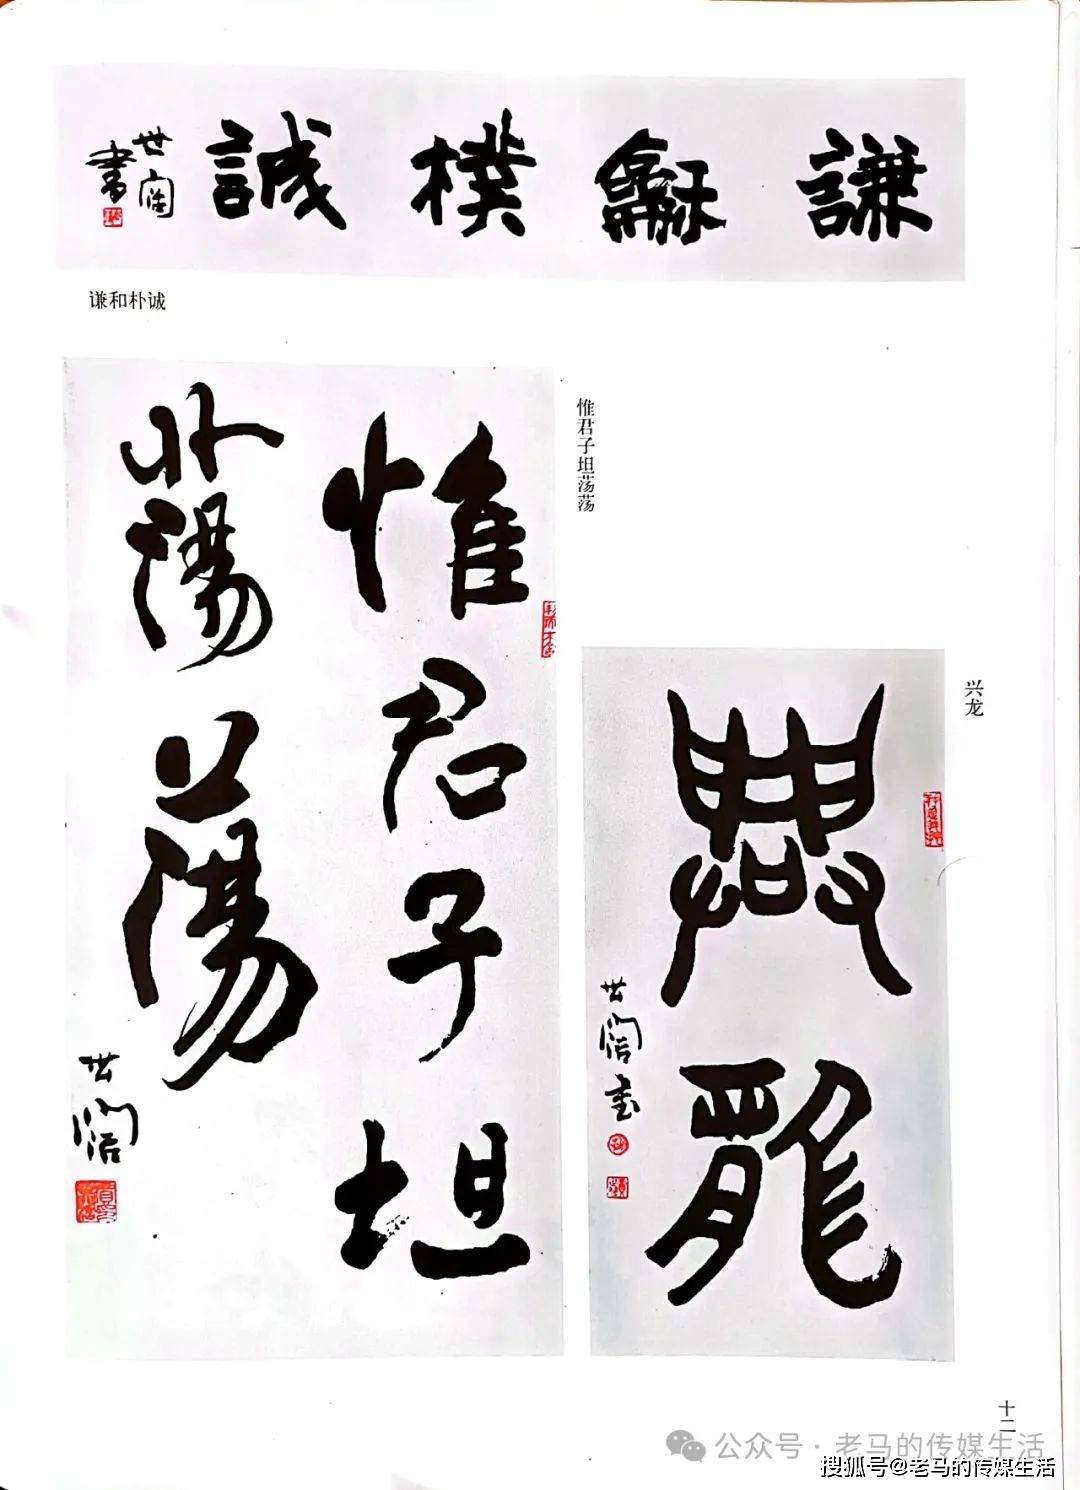 謙龢樸誠
世闊
書
谦和朴诚
惟君子坦
蕩蕩
世闊
惟君子坦荡荡
興龍
世闊书
兴龙
十二
公众号·老马的传媒生活
搜狐号@老马的传媒生活